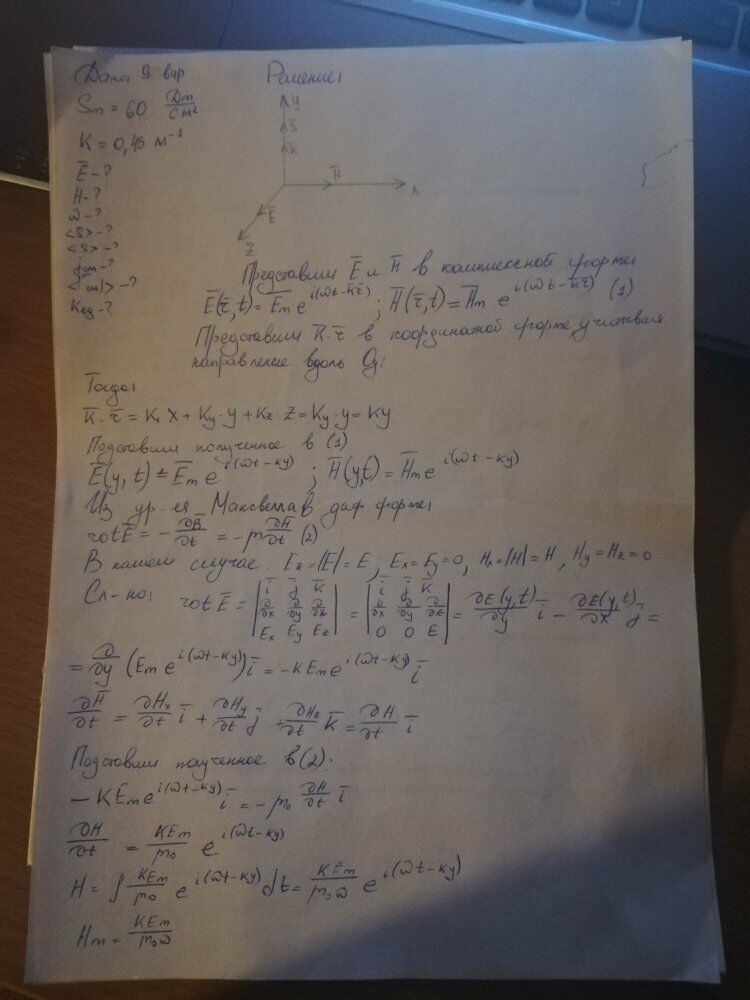 Дано 9 вар
Решение:
Sm = 60 Дж/см²
K = 0,45 м⁻¹
E̅ - ?
H̅ - ?
ω - ?
<S> - ?
<S> - ?
jсм - ?
Kед - ?
y
S̅
K̅
H̅
x
E̅
Z
Представим E̅ и H̅ в комплексной форме:
E̅(r̅,t) = E̅m e^{i(ωt-k̅r̅)} ; H̅(r̅,t) = H̅m e^{i(ωt-k̅r̅)} (1)
Представим K̅·r̅ в координатной форме, учитывая
направление вдоль Oy:
Тогда:
K̅·r̅ = Kx X + Ky·y + Kz·Z = Ky·y = Ky
Подставим полученное в (1)
E̅(y,t) = E̅m e^{i(ωt-ky)} ; H̅(y,t) = H̅m e^{i(ωt-ky)}
Из ур-ия Максвелла в диф. форме:
rot E̅ = -∂B̅/∂t = -μ ∂H̅/∂t (2)
В нашем случае. Ez = |E̅| = E ; Ex = Ey = 0, Hx = |H| = H, Hy = Hz = 0
Сл-но: rot E̅ = | i̅ j̅ k̅ ; ∂/∂x ∂/∂y ∂/∂z ; Ex Ey Ez | = | i̅ j̅ k̅ ; ∂/∂x ∂/∂y ∂/∂z ; 0 0 E | = ∂E(y,t)/∂y i̅ - ∂E(y,t)/∂x j̅ =
= ∂/∂y (Em e^{i(ωt-ky)}) i̅ = -kEm e^{i(ωt-ky)} i̅
∂H̅/∂t = ∂Hx/∂t i̅ + ∂Hy/∂t j̅ + ∂Hz/∂t K̅ = ∂H/∂t i̅
Подставим полученное в (2):
-KEm e^{i(ωt-ky)} i̅ = -μ₀ ∂H/∂t i̅
∂H/∂t = KEm/μ₀ e^{i(ωt-ky)}
H = ∫ KEm/μ₀ e^{i(ωt-ky)} dt = KEm/μ₀ω e^{i(ωt-ky)}
Hm = KEm/μ₀ω